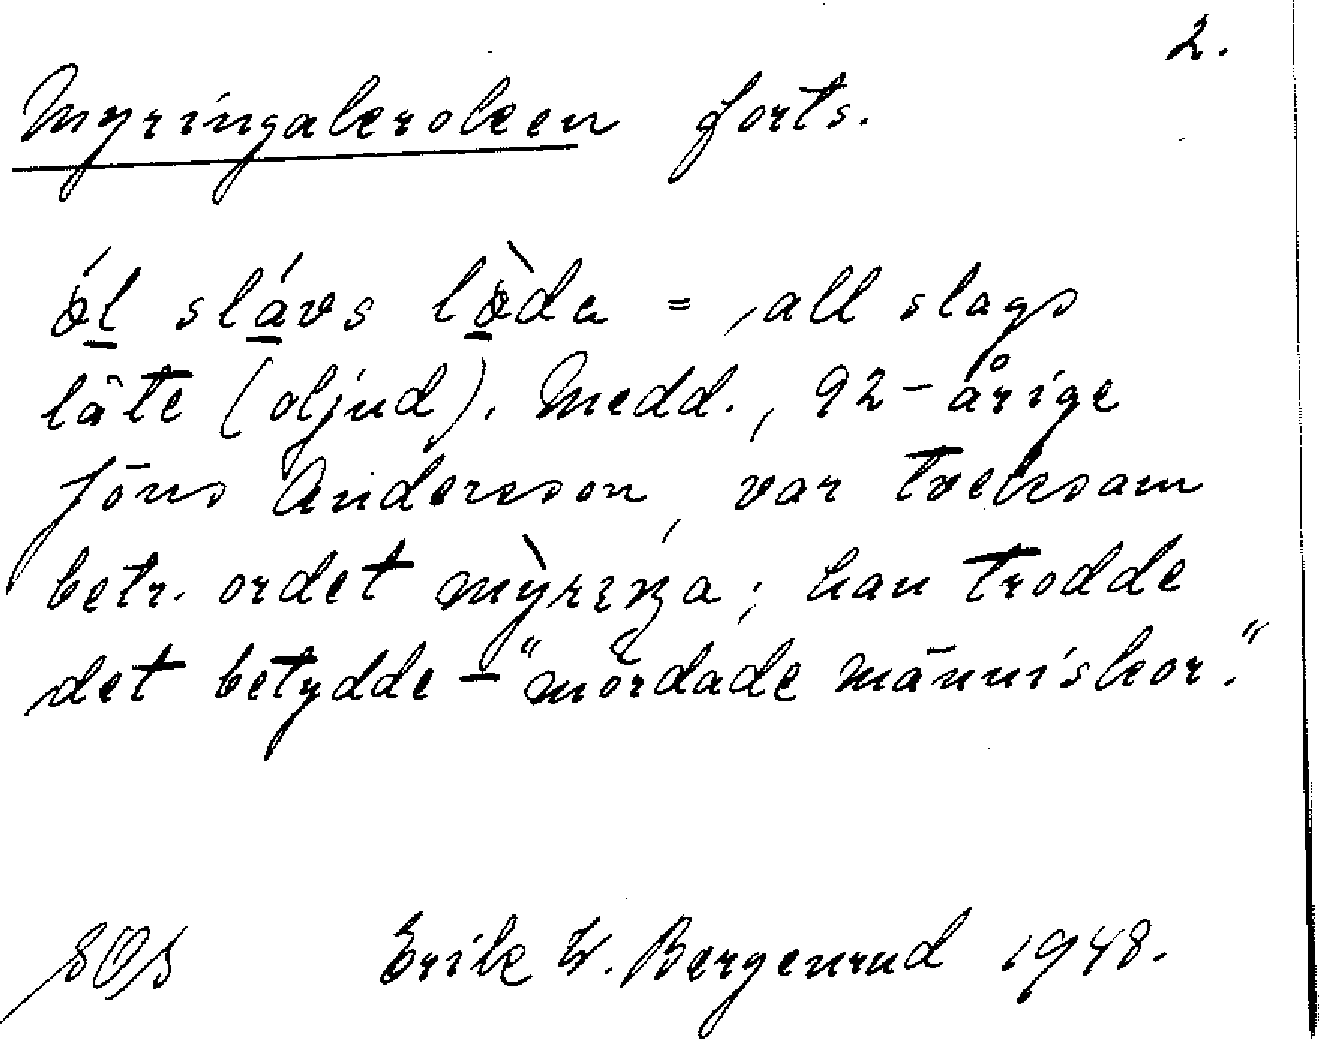 2.
Myringakroken forts.
ól slávs lòda = all slags
läte (oljud). Medd., 92-årige
Jöns Andersson, var tveksam
betr. ordet mỳriŋa; han trodde
det betydde – "mördade människor".
SOS Erik W. Bergenrud 1948.